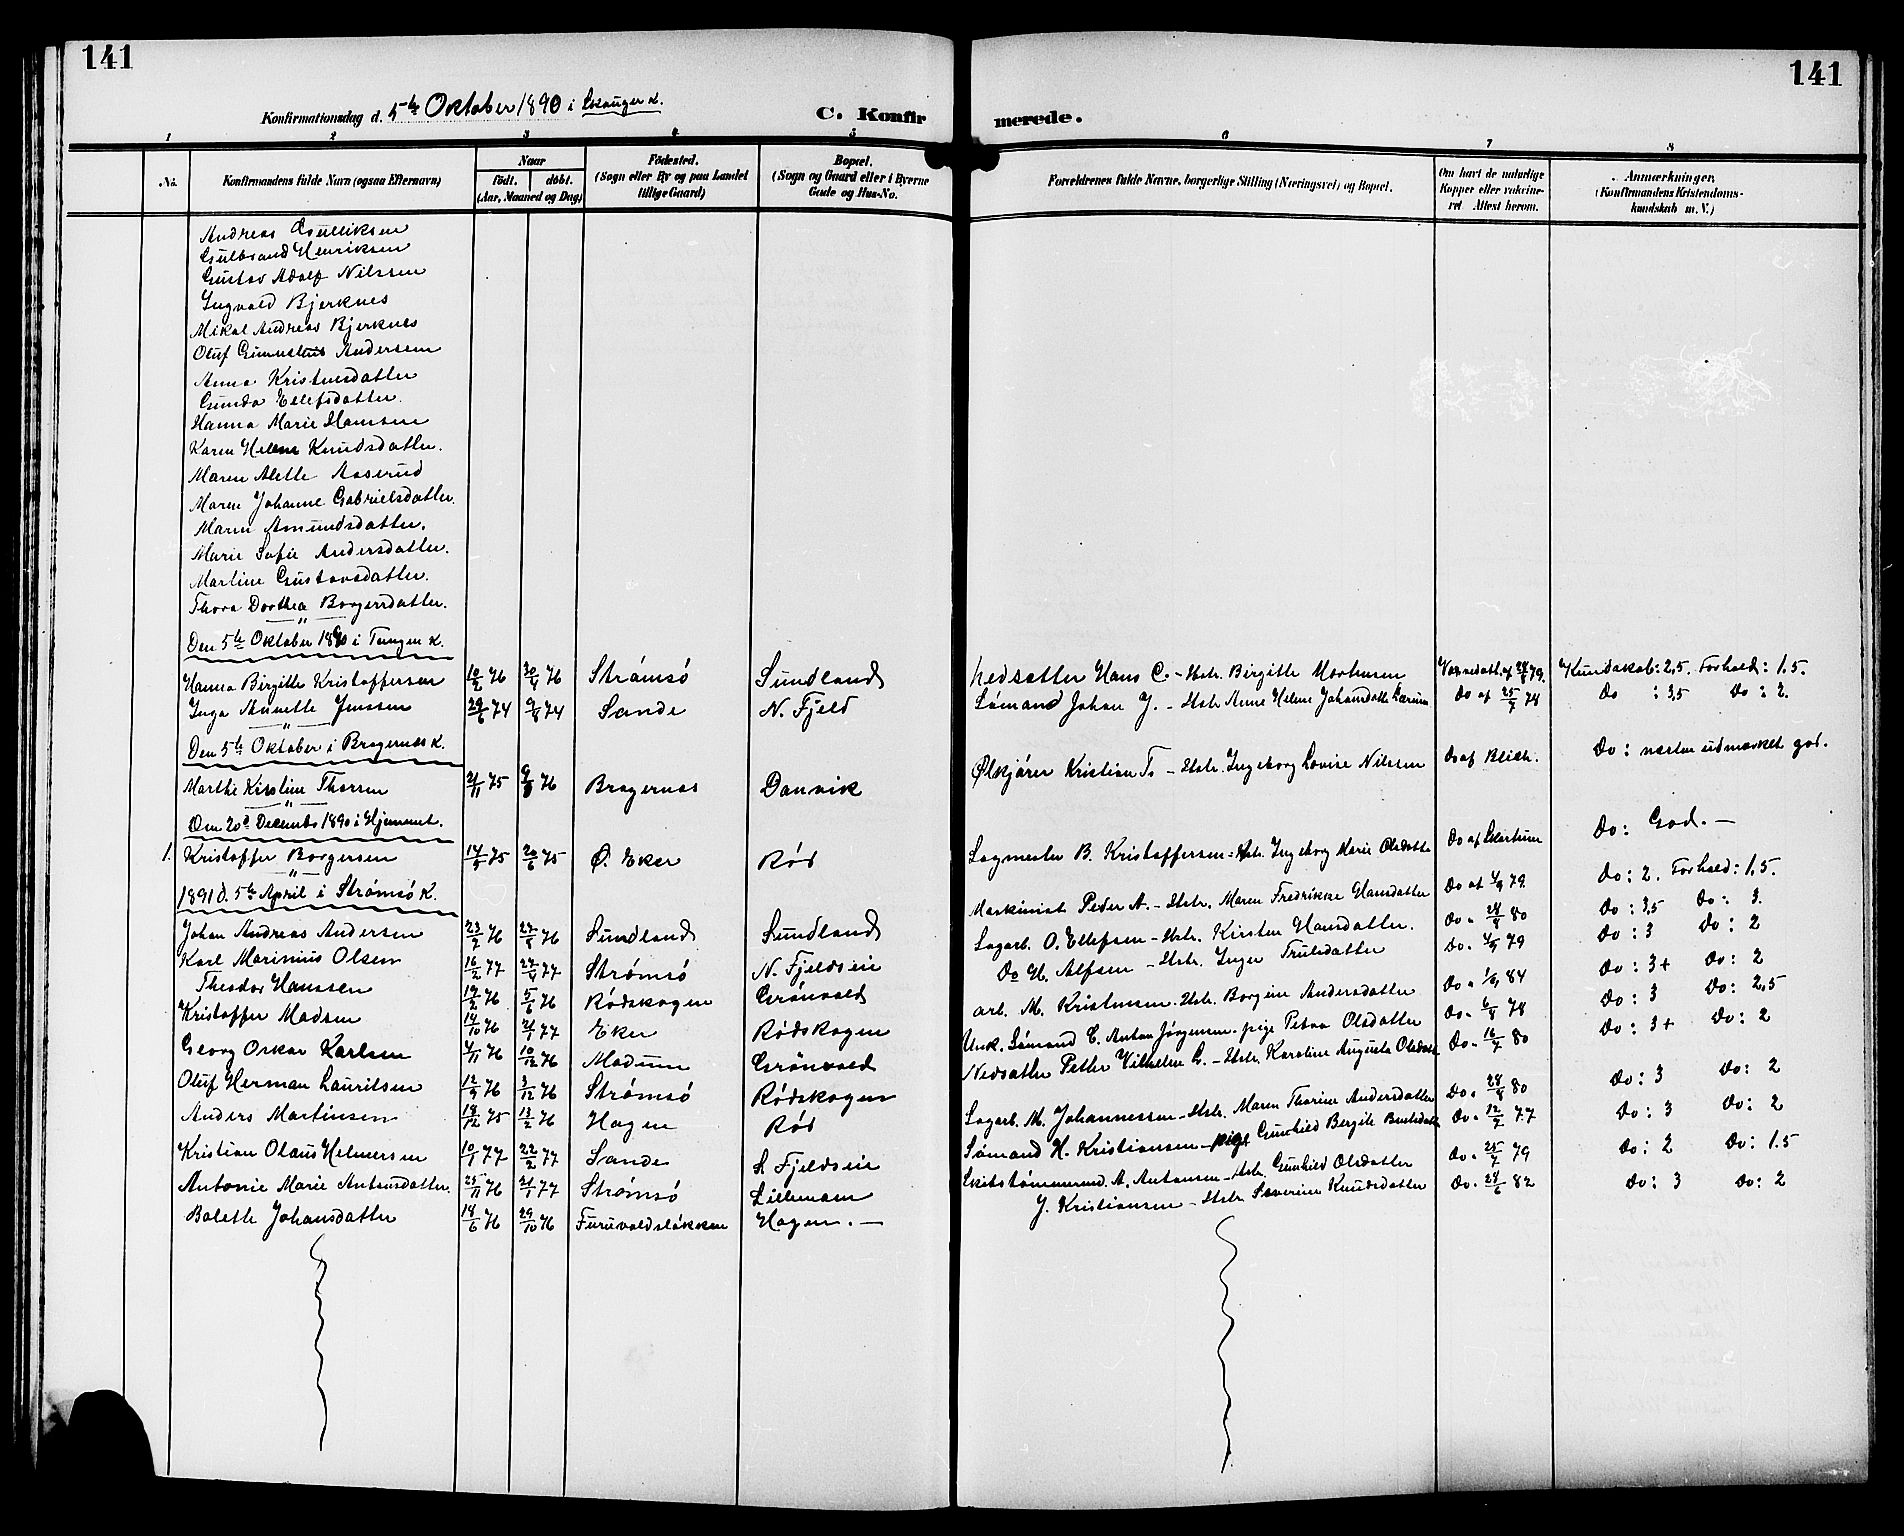 141
141
Konfirmationsdag d. 5te Oktober 1890 i Skouger K.
C. Konfirmerede.
1 2 3 4 5 6 7 8
No.
Konfirmandens fulde Navn (ogsaa Efternavn)
Naar
födt. döbt.
(Aar, Maaned og Dag)
Födested.
(Sogn eller By og paa Landet
tillige Gaard)
Bopæl.
(Sogn og Gaard eller i Byerne
Gade og Hus-No.
Forældrenes fulde Navne, borgerlige Stilling (Næringsvei) og Bopæl.
Om havt de naturlige
Kopper eller vakcine-
ret Attest herom.
Anmærkninger,
(Konfirmandens Kristendoms-
kundskab m. V.)
Andreas Gulliksen
Gulbrand Henriksen
Gustav Adolf Nilssen
Ingvald Bjerknes
Mikal Andreas Bjerknes
Oluf Andersen
Anna Kristensdatter
Gunda Ellefsdatter.
Hanna Marie Hansen
Karen Helene Knudsdatter.
Maren Alette Aaserud
Maren Johanne Gabrielsdatter.
Maren Amundsdatter.
Marie Sofie Andersdatter.
Martine Gustavsdatter.
Thora Dorthea Borgersdatter.
"
Den 5te Oktober 1890 i Tangen K.
Hanna Birgitte Kristoffersen 10/2 76 30/4 76 Strömsö Sundland Nedsætter Hans C. - Hstr. Birgitte Vaxnedatt. af 28/8 79. Kundskab: 2,5. Forhold: 1.5.
Inga Annette Jenssen 29/6 74 9/8 74 Sande N. Fjeld Sömand Johan J. - Hstr Anne Helene Johansdatter Do af 25/7 74 Do : 3,5 Do : 2.
"
Den 5te Oktober i Bragernæs K.
Marthe Kirstine Thorsen 21/11 75 76 Bragernæs Danvik Ølkjörer Kristian T. - Hstr. Ingeborg Lovise Nilssen Do af Blich. Do : næsten udmærket god.
"
Den 20de Decemb. 1890 i Hjemmet.
1. Kristoffer Borgersen 14/5 75 20/6 75 Ö. Eker Röd Sagmester B. Kristoffersen - Hstr. Ingeborg Marie Olsdatter Do af Do : God. —
"
1891 d. 5te April i Strömsö K.
Johan Andreas Andersen 23/2 76 27/8 76 Sundland Sundland Maskinist Peder A. - Hstr. Maren Fredrikke Hansdatter Do af 4/9 79. Do : 2. Forhold: 1,5.
Karl Marinius Olsen 16/2 77 22/4 77 Strömsö N. Fjeldseie Sagarb. O. Ellefsen - Hstr. Kirsten Hansdatter. Do " 28/8 80 Do : 3,5 Do : 3.
Theodor Hanssen 19/2 76 5/6 76 Rödskogen Grönvold Do H. Alfsen - Hstr. Inger Trulsdatter Do " 4/9 79 Do : 3 Do : 2
Kristoffer Madsen 14/10 76 2/4 77 Eker Rödskogen arb. M. Kristensen - Hstr. Borgine Andersdatter Do " 1/9 84 Do : 3+ Do : 2
Georg Oskar Karlsen 4/11 76 10/12 76 Modum Grönvold Unk. Sömand C. Anton Jörgensen - pige Petra Olsdatter Do " 6/8 78 Do : 3 Do : 2,5
Oluf Herman Lauritsen 12/9 76 3/12 76 Strömsö Rödskogen Nedsætter Petter Vilhelm L. - Hstr. Karoline Augusta Olsdatter Do " 16/7 80 Do : 3+ Do : 2
Anders Martinsen 18/12 75 13/2 76 Hagen Röd Sagarb. M. Johannessen - Hstr. Maren Thorine Andersdatter Do " 28/8 80 Do : 3 Do : 2
Kristian Olaus Helmersen 10/1 77 22/2 77 Sande S. Fjeldseie Sömand H. Kristiansen - pige Gunhild Bergite Do " 12/7 77 Do : 3 Do : 2
Antonie Marie Antonsdatter. 25/11 76 21/1 77 Strömsö A. Antonsen - Hstr. Gunhild Olsdatter Do " 25/7 79 Do : 2 Do : 1.5
Bolette Johansdatter 18/6 76 29/10 76 Furuvoldslökken Hagen. — J. Kristiansen - Hstr. Severine Knudsdatter Do " 28/6 82 Do : 3 Do : 2